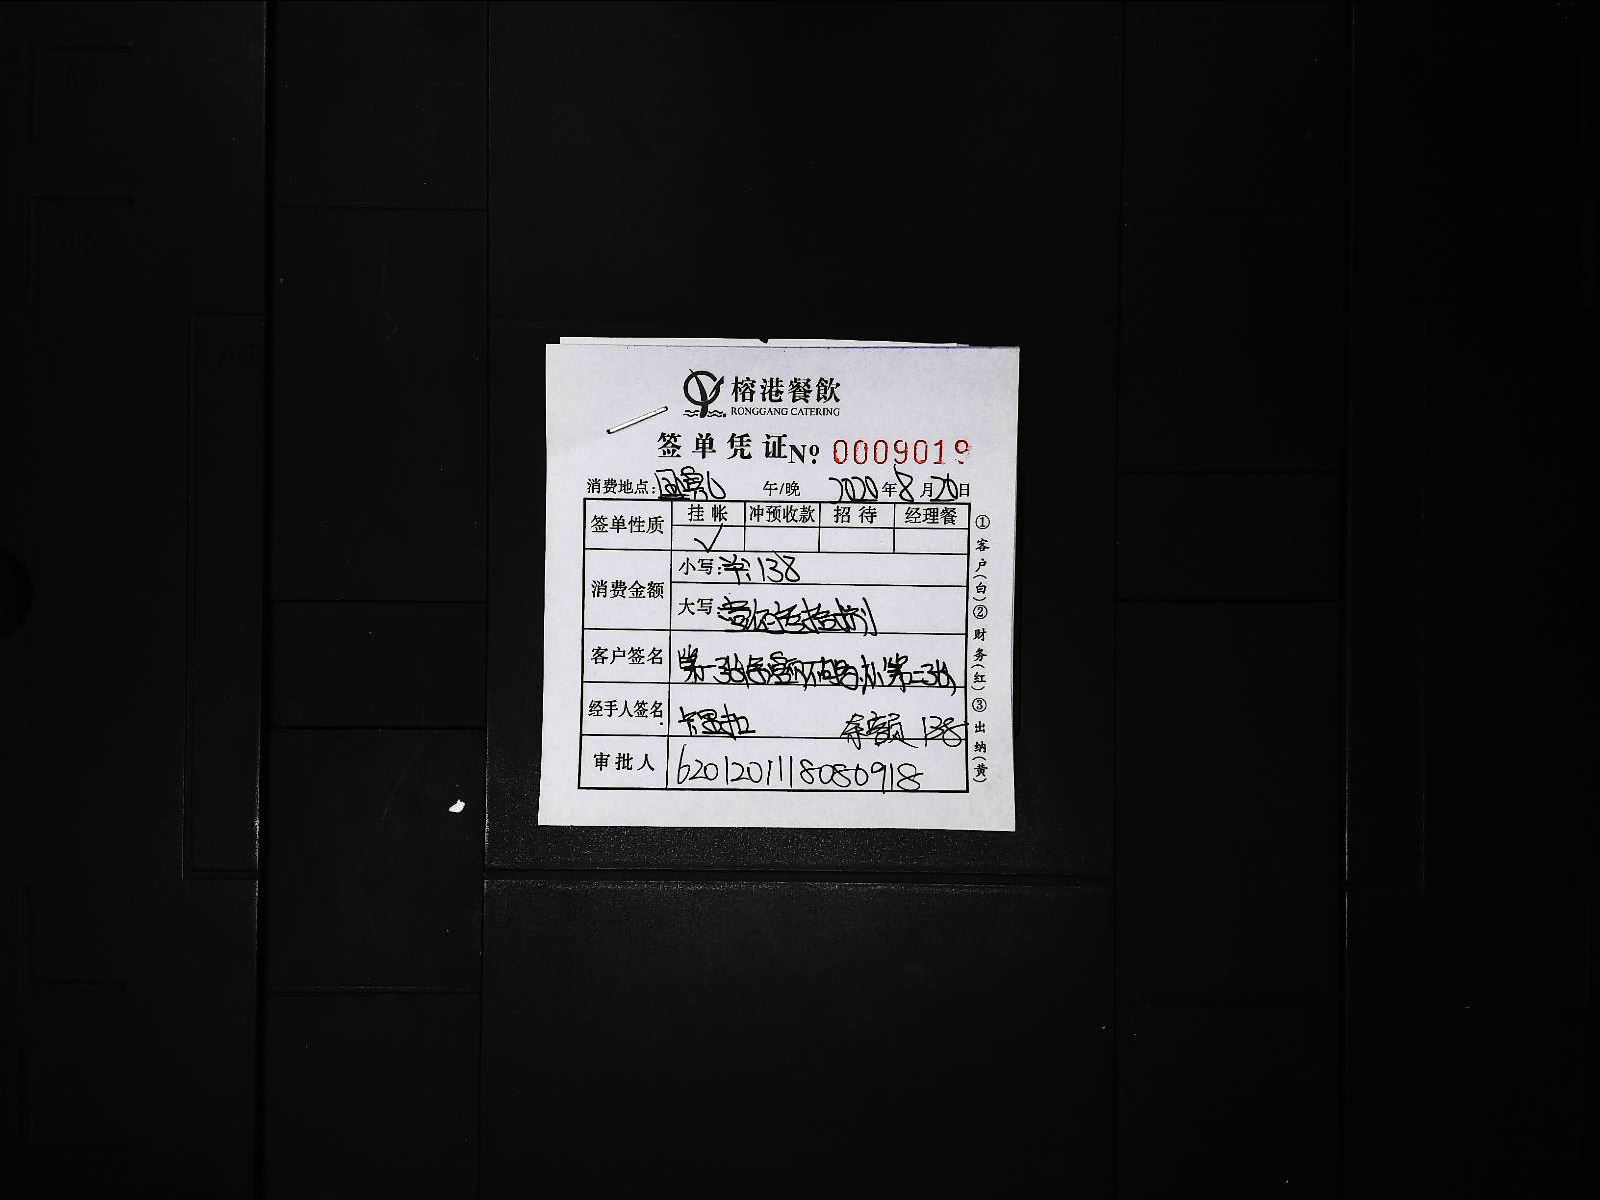 榕港餐飲
RONGGANG CATERING
签单凭证 No. 0009019
消费地点: 午/晚 2020年8月20日
签单性质 挂帐 冲预收款 招待 经理餐
√
消费金额 小写: 138
大写: 壹佰叁拾捌
客户签名 第一张 第二张
经手人签名 138
审批人 6201201118080918
①客户(白)②财务(红)③出纳(黄)